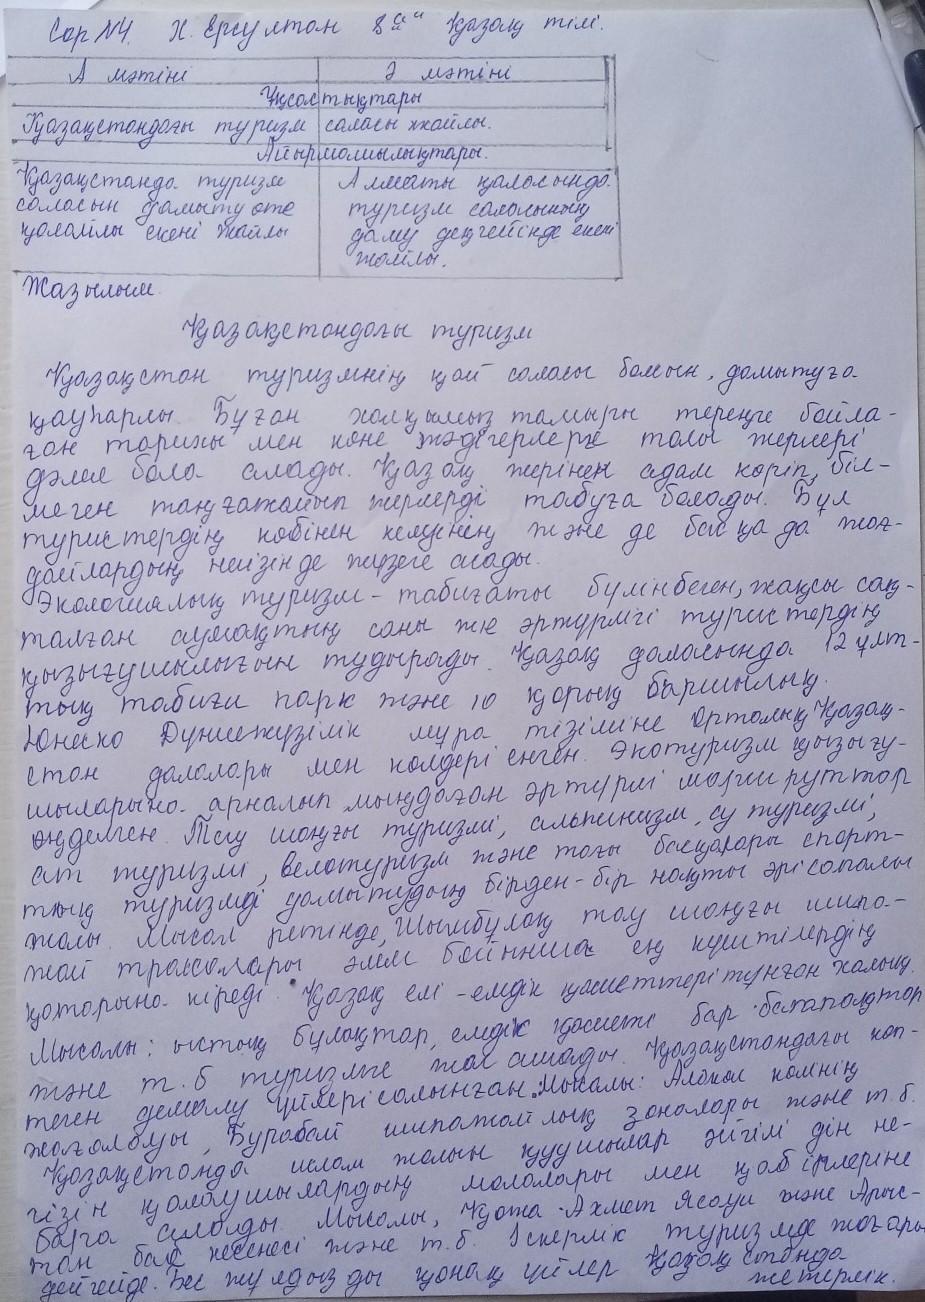 Сор №4. Н. Ерсултон 8 "а" Қазақ тілі.
А мәтіні Ә мәтіні
Ұқсастықтары
Қазақстандағы туризм саласы жайлы.
Айырмашылықтары.
Қазақстанда туризм Алматы қаласында
саласын дамыту өте туризм саласының
қолайлы екені жайлы даму деңгейінде екені
жайлы.
Жазылым
Қазақстандағы туризм
Қазақстан туризмнің қай саласы болсын, дамытуға
қауһарлы. Бұған халқымыз тамыры тереңге бойла-
ған тарихы мен көне жәдігерлерге толы жерлері
дәлел бола алады. Қазақ жерінен адам көріп, біл-
меген таңғажайып жерлерді табуға болады. Бұл
туристердің көбінен келуінің және де басқа да жағ-
дайлардың негізінде жүзеге асады.
Экологиялық туризм - табиғаты бүлінбеген, жақсы сақ-
талған аумақтың саны және әртүрлігі туристердің
қызығушылығын тудырады. Қазақ даласында 12 ұлт-
тық табиғи парк және 10 қорық баршылық.
Юнеско Дүниежүзілік мұра тізіміне Орталық Қазақ-
стан далалары мен көлдері енген. Экотуризм қызығу-
шыларына арналып мыңдаған әртүрлі маршруттар
өңделген. Тау шаңғы туризмі, альпинизм, су туризмі,
ат туризмі, велотуризм және тағы басқалары спорт-
тық туризмді дамытудың бірден-бір нақты әрі сапалы
жолы. Мысал ретінде, Шымбұлақ тау шаңғы шипа-
жай трассалары әлем бойынша ең күштілердің
қатарына кіреді. Қазақ елі - емдік қасиеттері тұнған халық.
Мысалы: ыстық бұлақтар, емдік қасиеті бар батпақтар
және т.б туризмге жол ашады. Қазақстандағы көп-
теген демалу үйлері салынған. Мысалы: Алакөл көлінің
жағалауы, Бурабай шипажайлық зоналары және т.б.
Қазақстанда ислам жолын қуушылар әйгілі дін не-
гізін қалаушылардың молалары мен қабірлеріне
барға сұлады. Мысалы, Қожа Ахмет Ясауи және Арыс-
тан баб кесенесі және т.б Іскерлік туризмде жоғары
деңгейде. Бес жұлдызды қонақ үйлер Қазақстанда
жетерлік.